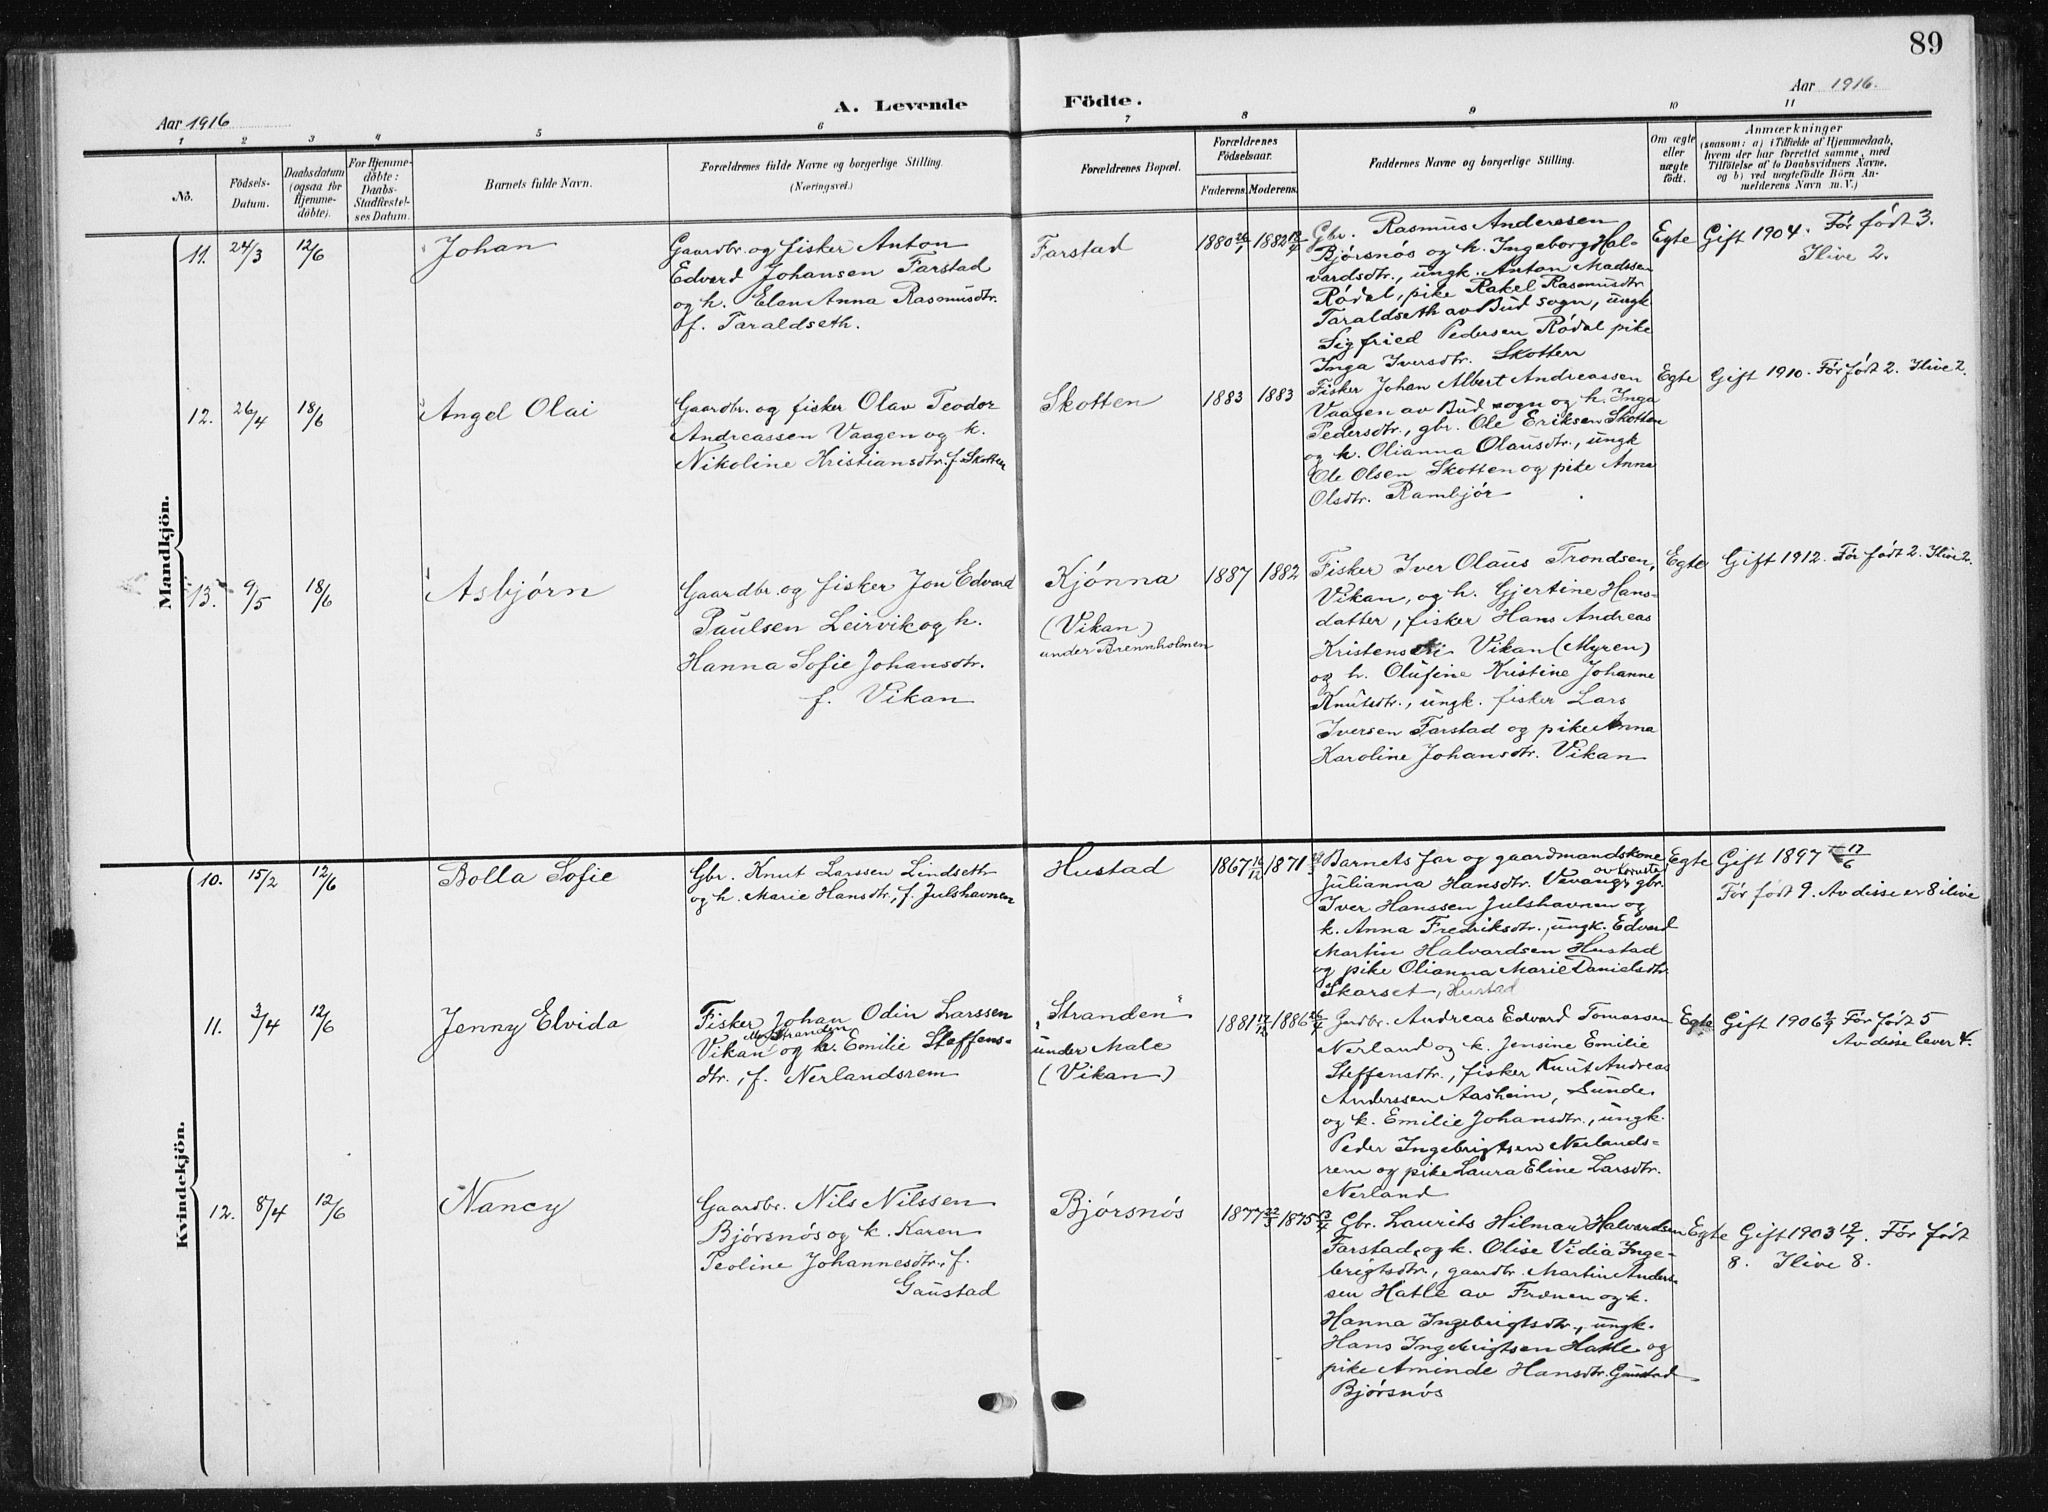 89
Aar 1916
A. Levende Födte.
Aar 1916.
1 2 3 4 5 6 7 8 9 10 11
No.
Födsels-
Datum.
Daabsdatum
(ogsaa for
Hjemme-
döbte).
For Hjemme-
döbte:
Daabs-
Stadfæstel-
ses Datum.
Barnets fulde Navn.
Forældrenes fulde Navne og borgerlige Stilling.
(Næringsvei.)
Forældrenes Bopæl.
Forældrenes
Födselsaar.
Faderens. Moderens.
Faddernes Navne og borgerlige Stilling.
Om ægte
eller
uægte
født.
Anmærkninger
(saasom: a) i Tilfælde af Hjemmedaab,
hvem der har forrettet samme, med
Tilföielse af to Daabsvidners Navne,
og b) ved uægtefödte Börn An-
melderens Navn m. V.)
Mandkjön.
11. 24/3 12/6
Johan
Gaardbr. og fisker Anton
Edvard Johansen Farstad
og h. Elen Anna Rasmusdtr.
f. Taraldseth.
Farstad
1880 26/1 1882 12/4
Gbr. Rasmus Anderssen
Bjørsnós og h. Ingeborg Hal-
vardsdtr., ungk. Anton Madssen
Ródal, pike Rakel Rasmusdtr
Taraldseth av Bud sogn, ungk
Sigfried Pedersen Ródal pike
Inga Iversdtr. Skotten
Egte
Gift 1904. Før født 3.
Ilive 2.
12. 26/4 18/6
Angel Olai
Gaardbr. og fisker Olav Teodor
Andreassen Vaagen og h.
Nikoline Kristiansdtr. f. Skotten
Skotten
1883 1883
Fisker Johan Albert Andreassen
Vaagen av Bud sogn og h. Inga
Pedersdtr., gbr. Ole Eriksen Skotten
og h. Olianna Olausdtr., ungk
Ole Olsen Skotten og pike Anna
Olsdtr. Rambjór
Egte
Gift 1910. Før født 2. Ilive 2.
13. 9/5 18/6
Asbjørn
Gaardbr. og fisker Jon Edvard
Paulsen Leirvik og h.
Hanna Sofie Johansdtr.
f. Vikan
Kjónna
(Vikan)
under Brennholmen
1887 1882
Fisker Iver Olaus Trondsen,
Vikan, og h. Gjertine Hans-
datter, fisker Hans Andreas
Kristensen Vikan (Myren)
og h. Olufine Kristine Johanne
Knutsdtr., ungk. fisker Lars
Iversen Farstad og pike Anna
Karoline Johansdtr. Vikan
Egte
Gift 1912. Før født 2. Ilive 2.
Kvindekjön.
10. 15/2 12/6
Bolla Sofie
Gbr. Knut Larssen Lindseth
og h. Marie Hansdtr., f. Julshavnen
Hustad
1867 1871
Barnets far og gaardmandskone
Julianna Hansdtr. Vevang, gbr.
Iver Hanssen Julshavnen og
k. Anna Fredriksdtr., ungk. Edvard
Martin Halvardsen Hustad
og pike Olianna Marie Danielsdtr.
Skarset, Hustad
Egte
Gift 1897 17/6
Før født 9. Av disse er 8 ilive
11. 3/4 12/6
Jenny Elvida
Fisker Johan Odin Larssen
Vikan og k. Emilie Steffens-
dtr., f. Nerlandsrem
"Stranden"
under Male
(Vikan)
1881 1886 26/4
Gardbr. Andreas Edvard Tomassen
Nerland og k. Jensine Emilie
Steffensdtr., fisker Knut Andreas
Anderssen Aasheim, Sunde,
og k. Emilie Johansdtr., ungk.
Peder Ingebrigtsen Nerlands-
rem og pike Laura Eline Larsdtr.
Nerland
Egte
Gift 1906 2/9 Før født 5
Av disse lever 4.
12. 8/4 12/6
Nancy
Gaardbr. Nils Nilssen
Bjórsnós og k. Karen
Peoline Johannesdtr., f.
Gaustad
Bjórsnós
1877 22/3 1875 13/4
Gbr. Laurits Hilmar Halvardsen
Farstad, og k. Olise Vidia Inge-
brigtsdtr., gaardbr. Martin Anders-
sen Hatle av Frænen og k.
Hanna Ingebrigtsdtr., ungk.
Hans Ingebrigtsen Hatle og
pike Aminde Hansdtr. Gaustad
Bjórsnós
Egte
Gift 1903 19/7. Før født
8. Ilive 8.